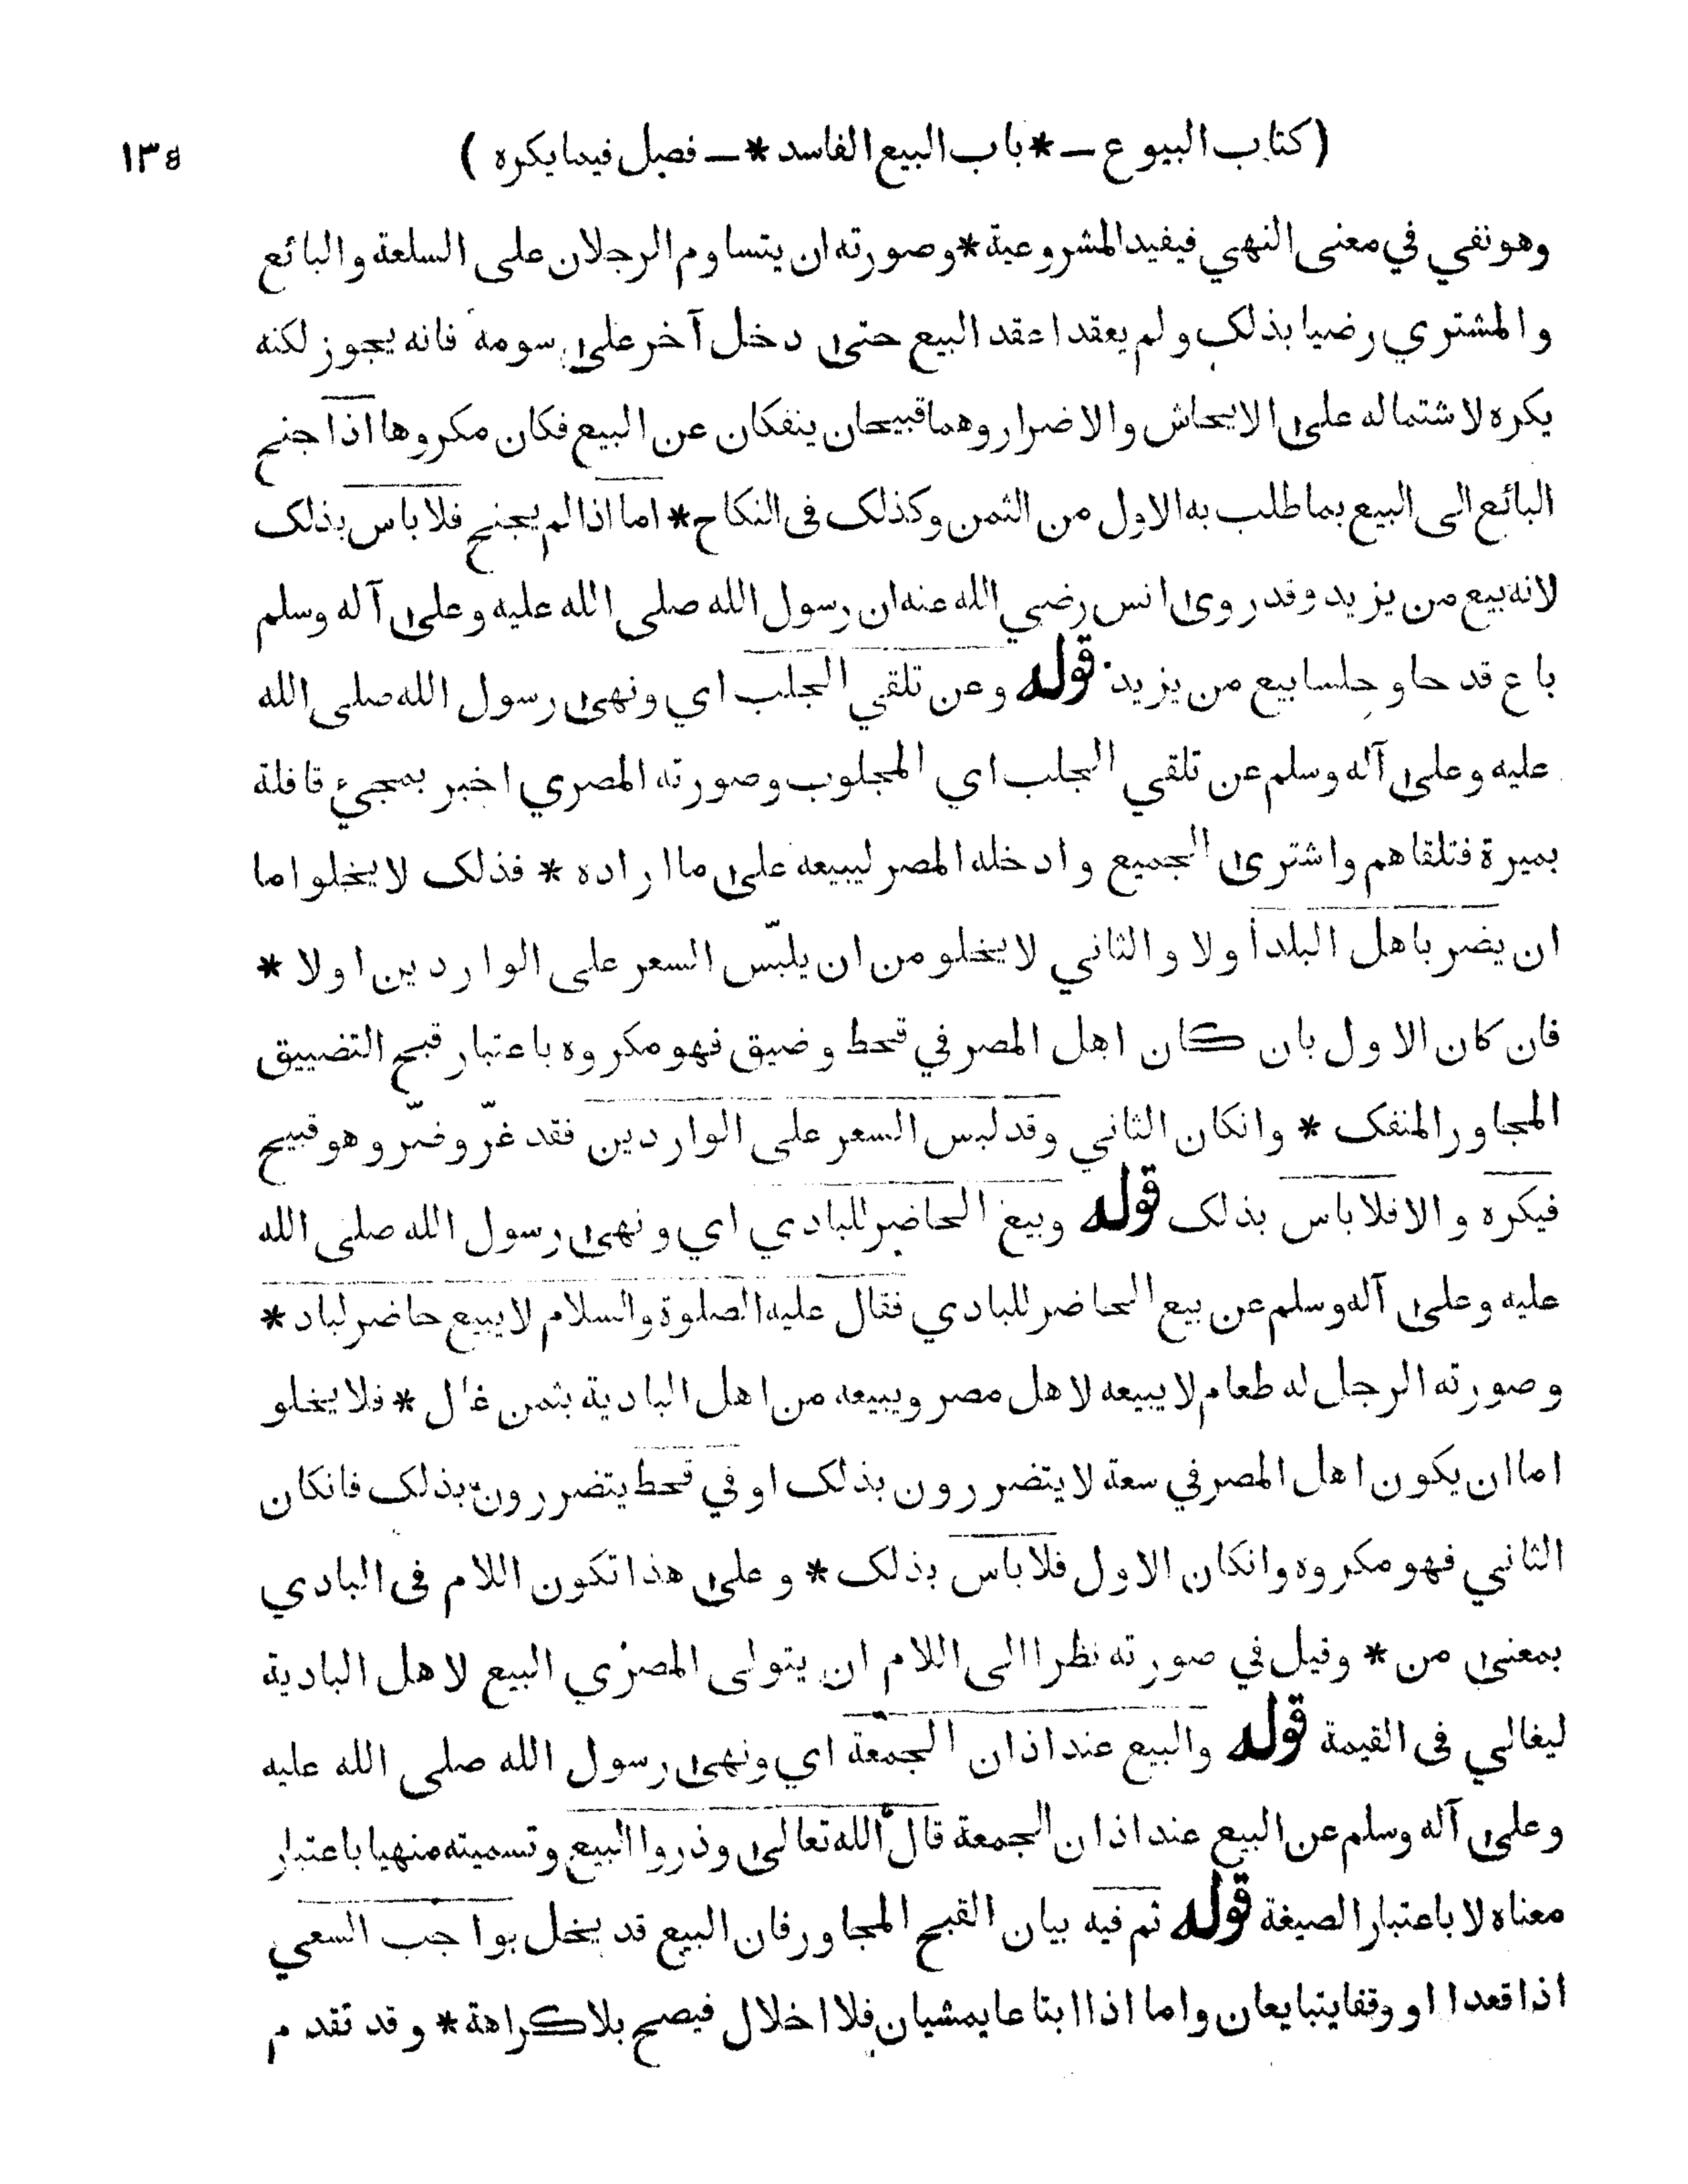 (كتاب البيوع — * باب البيع الفاسد * — فصل فيما يكره) ١٣٥
وهو نفي في معنى النهي فيفيد المشروعية * وصورته ان يتساوم الرجلان على السلعة والبائع
والمشتري رضيا بذلك ولم يعقدا عقد البيع حتى دخل آخر على سومه فانه يجوز لكنه
يكره لاشتماله على الايحاش والاضرار وهما قبيحان ينفكان عن البيع فكان مكروها اذا جنح
البائع الى البيع بما طلب به الاول من الثمن وكذلك في النكاح * اما اذا لم يجنح فلا باس بذلك
لانه بيع من يزيد وقد روى انس رضي الله عنه ان رسول الله صلى الله عليه وعلى آله وسلم
باع قدحا وحلسا بيع من يزيد قوله وعن تلقي الجلب اي ونهى رسول الله صلى الله
عليه وعلى آله وسلم عن تلقي الجلب اي المجلوب وصورته المصري اخبر بمجيء قافلة
بميرة فتلقاهم واشترى الجميع وادخله المصر ليبيعه على ما اراده * فذلك لا يخلو اما
ان يضر باهل البلد أولا والثاني لا يخلو من ان يلبّس السعر على الواردين اولا *
فان كان الاول بان كان اهل المصر في قحط وضيق فهو مكروه باعتبار قبح التضييق
المجاور المنفك * وانكان الثاني وقد لبس السعر على الواردين فقد غرّ وضرّ وهو قبيح
فيكره والا فلا باس بذلك قوله وبيع الحاضر للبادي اي ونهى رسول الله صلى الله
عليه وعلى آله وسلم عن بيع الحاضر للبادي فقال عليه الصلوة والسلام لا يبيع حاضر لباد *
وصورته الرجل له طعام لا يبيعه لاهل مصر ويبيعه من اهل البادية بثمن غال * فلا يخلو
اما ان يكون اهل المصر في سعة لا يتضررون بذلك او في قحط يتضررون بذلك فانكان
الثاني فهو مكروه وانكان الاول فلا باس بذلك * وعلى هذا تكون اللام في البادي
بمعنى من * وقيل في صورته نظرا الى اللام ان يتولى المصري البيع لاهل البادية
ليغالي في القيمة قوله والبيع عند اذان الجمعة اي ونهى رسول الله صلى الله عليه
وعلى آله وسلم عن البيع عند اذان الجمعة قال الله تعالى وذروا البيع وتسميته منهيا باعتبار
معناه لا باعتبار الصيغة قوله ثم فيه بيان القبح المجاور فان البيع قد يخل بواجب السعي
اذا قعدا او وقفا يتبايعان واما اذا ابتاعا يمشيان فلا اخلال فيصح بلا كراهة * وقد تقدم